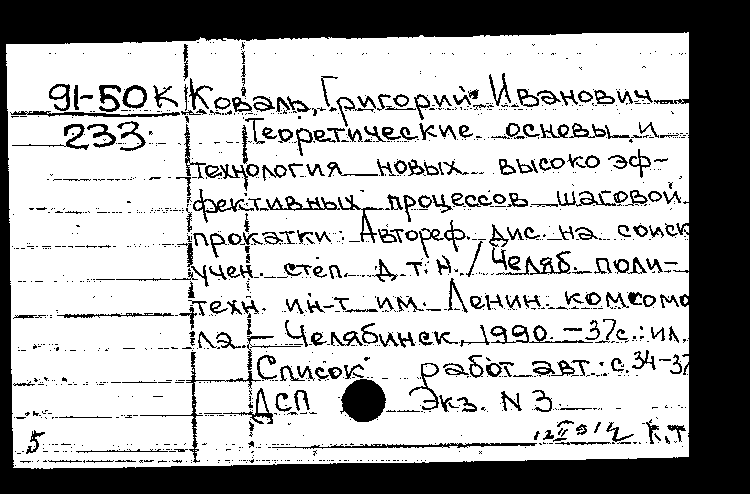 91-50К Коваль, Григорий Иванович
233. Теоретические основы и
технология новых высокоэф-
фективных процессов шаговой
прокатки: Автореф. дис. на соиск
учен. степ. д.т.н. / Челяб. поли-
техн. ин-т им. Ленин. комсомо
ла – Челябинск, 1990. – 37с.: ил.
Список работ авт.: с.34-37
ДСП Экз. N 3
5 К.т